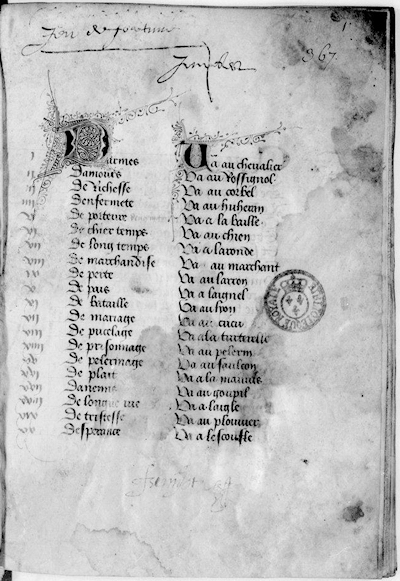 Jeu de fortune
1
367
Darmes Va au chevalier
Damours Va au Rossignol
De Richesse Va au corbel
Denfermete Va au huheran
De porteure Va a la baille
De chier temps Va au chien
De long temps Va a laronde
De marchandise Va au marchant
De perte Va au larron
De pais Va a laignel
De bataille Va au lyon
De mariage Va au cucu
De pucelage Va a la turterelle
De prisonnage Va au pelerin
De pelerinage Va au faulcon
De plait Va a la mauuis
Va au goupil
De longue vie Va a laigle
De tristesse Va au plouuier
Desperance Va a lescoufle